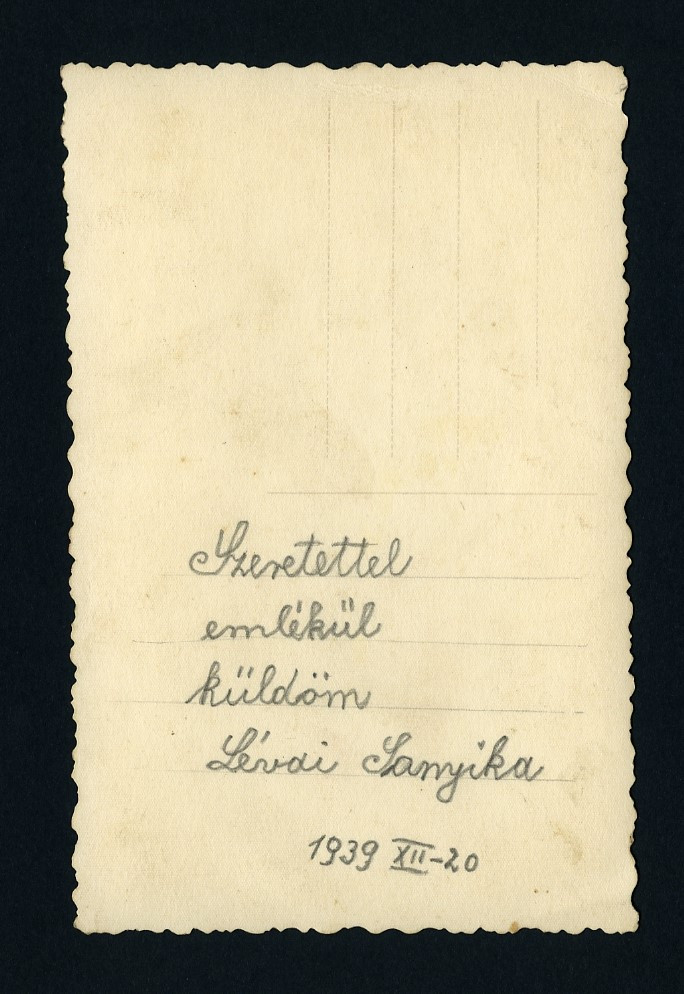 Szeretettel
emlékül
küldöm
Lévai Sanyika
1939 XII-20